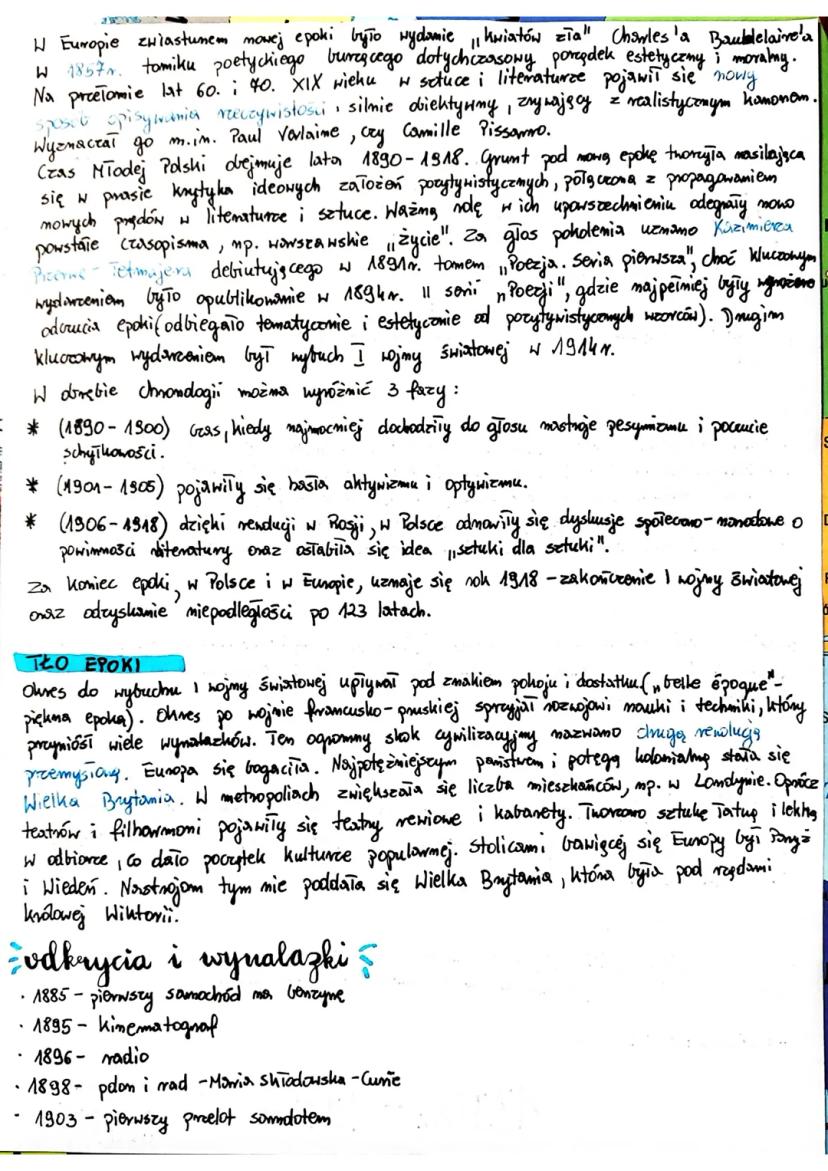 W Europie zwiastunem nowej epoki było wydanie „kwiatów zła" Charles'a Baudelaire'a
w 1857r. tomiku poetyckiego burzącego dotychczasowy porządek estetyczny i moralny.
Na przełomie lat 60. i 70. XIX wieku w sztuce i literaturze pojawił się nowy
sposób opisywania rzeczywistości, silnie obiektywny, zrywający z realistycznym kanonem.
Wyznaczał go m.in. Paul Verlaine, czy Camille Pissarro.
Czas Młodej Polski obejmuje lata 1890-1918. Grunt pod nową epokę tworzyła nasilająca
się w prasie krytyka ideowych założeń pozytywistycznych, połączona z propagowaniem
nowych prądów w literaturze i sztuce. Ważną rolę w ich upowszechnieniu odegrały nowo
powstałe czasopisma, np. warszawskie „życie". Za głos pokolenia uznano Kazimierza
Przerwę-Tetmajera debiutującego w 1891r. tomem „Poezja. Seria pierwsza", choć kluczowym
wydarzeniem było opublikowanie w 1894r. II serii „Poezji", gdzie najpełniej były wyrażone
odczucia epoki (odbiegało tematycznie i estetycznie od pozytywistycznych wzorców). Drugim
kluczowym wydarzeniem był wybuch I wojny światowej w 1914r.
W obrębie chronologii można wyróżnić 3 fazy:
* (1890-1900) czas, kiedy najmocniej dochodziły do głosu nastroje pesymizmu i poczucie
schyłkowości.
* (1901-1905) pojawiły się hasła aktywizmu i optymizmu.
* (1906-1918) dzięki rewolucji w Rosji, w Polsce odnowiły się dyskusje społeczno-narodowe o
powinności literatury oraz osłabiła się idea „sztuki dla sztuki".
Za koniec epoki, w Polsce i w Europie, uznaje się rok 1918 - zakończenie I wojny światowej
oraz odzyskanie niepodległości po 123 latach.
TŁO EPOKI
Okres do wybuchu I wojny światowej upływał pod znakiem pokoju i dostatku („belle époque"-
piękna epoka). Okres po wojnie francusko-pruskiej sprzyjał rozwojowi nauki i techniki, który
przyniósł wiele wynalazków. Ten ogromny skok cywilizacyjny nazwano drugą rewolucją
przemysłową. Europa się bogaciła. Najpotężniejszym państwem i potęgą kolonialną stała się
Wielka Brytania. W metropoliach zwiększała się liczba mieszkańców, np. w Londynie. Oprócz
teatrów i filharmonii pojawiły się teatry rewiowe i kabarety. Tworzono sztukę łatwą i lekką
w odbiorze, co dało początek kulturze popularnej. Stolicami bawiącej się Europy był Paryż
i Wiedeń. Nastrojom tym nie poddała się Wielka Brytania, która była pod rządami
królowej Wiktorii.
odkrycia i wynalazki
· 1885 - pierwszy samochód na benzynę
· 1895 - kinematograf
· 1896 - radio
· 1898 - polon i rad - Maria Skłodowska-Curie
· 1903 - pierwszy przelot samolotem